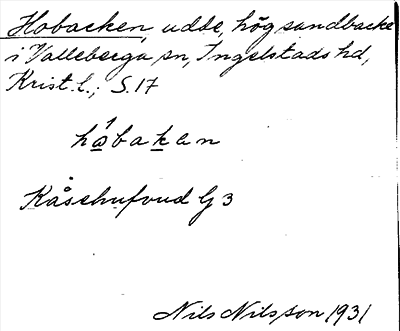 Hobacken, udde, hög sandbacke
i Valleberga sn, Ingelstads hd,
Krist. l.; S. 17
håbaken
Kåsehufvud G 3
Nils Nilsson 1931